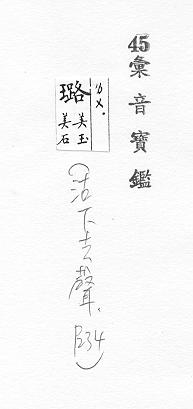 45彙音寶鑑
ㄌㄨ.
璐
美玉
美石
(沽下去聲.P34)